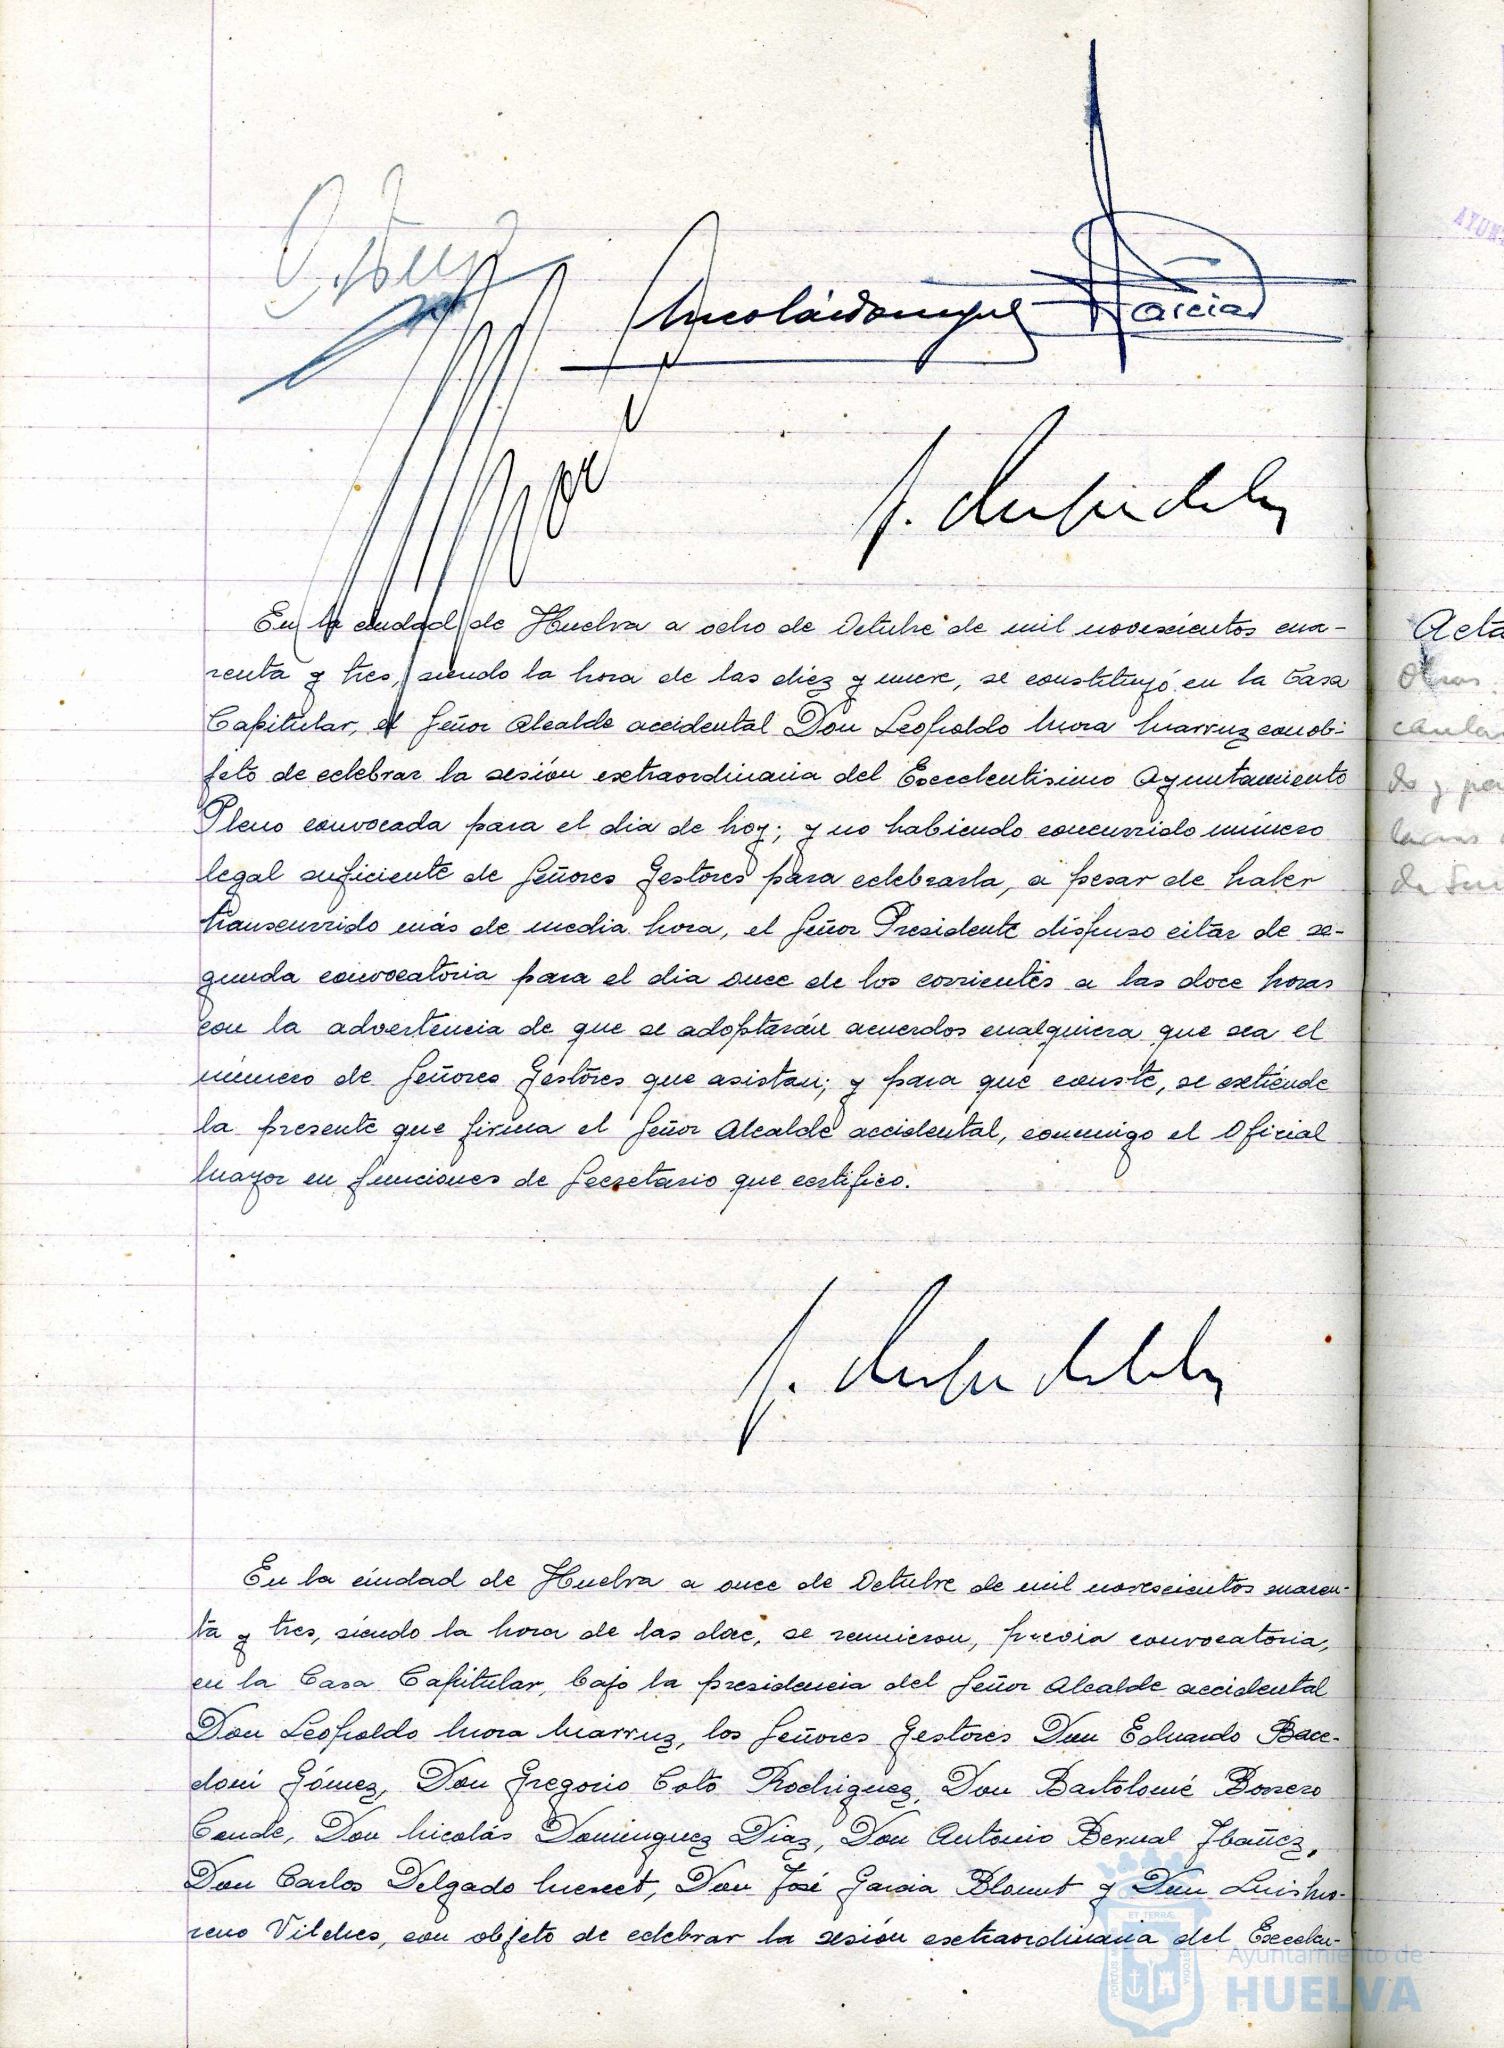 Nicolás Domínguez
García
En la ciudad de Huelva a ocho de Octubre de mil novescientos cua-
renta y tres, siendo la hora de las diez y nueve, se constituyó en la Casa
Capitular, el Señor Alcalde accidental Don Leopoldo Mora Marruz con ob-
jeto de celebrar la sesión extraordinaria del Excelentisimo Ayuntamiento
Pleno convocada para el dia de hoy; y no habiendo concurrido número
legal suficiente de Señores Gestores para celebrarla, a pesar de haber
transcurrido más de media hora, el Señor Presidente dispuso citar de se-
gunda convocatoria para el dia once de los corrientes a las doce horas
con la advertencia de que se adoptarán acuerdos cualquiera que sea el
número de Señores Gestores que asistan; y para que conste, se extiende
la presente que firma el Señor Alcalde accidental, conmigo el Oficial
Mayor en funciones de Secretario que certifico.
En la ciudad de Huelva a once de Octubre de mil novescientos cuaren-
ta y tres, siendo la hora de las doce, se reunieron, previa convocatoria,
en la Casa Capitular, bajo la presidencia del Señor Alcalde accidental
Don Leopoldo Mora Marruz, los Señores Gestores Don Eduardo Bace-
doni Gómez, Don Gregorio Coto Rodriguez, Don Bartolomé Borrero
Conde, Don Nicolás Dominguez Diaz, Don Antonio Bernal Ibañez,
Don Carlos Delgado Meseet, Don José Garcia Blount y Don Luis Mo-
reno Vilches, con objeto de celebrar la sesión extraordinaria del Excelen-
Acta
Ayuntamiento de
HUELVA